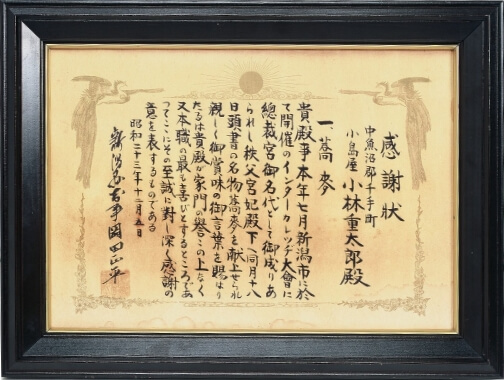 感謝状
中魚沼郡千手町
小嶋屋 小林重太郎殿
一、蕎麥
貴殿事本年七月新潟市に於
て開催のインターカレッヂ大會に
總裁宮御名代として御成りあ
られし秩父宮妃殿下へ同月十八
日頭書の名物蕎麥を献上せられ
親しく御賞味の御言葉を賜はり
たるは貴殿が家門の譽この上なく
又本職の最も喜びとするところであ
つてここにその至誠に対し深く感謝の
意を表するものである
昭和二十三年十二月五日
新潟縣知事岡田正平